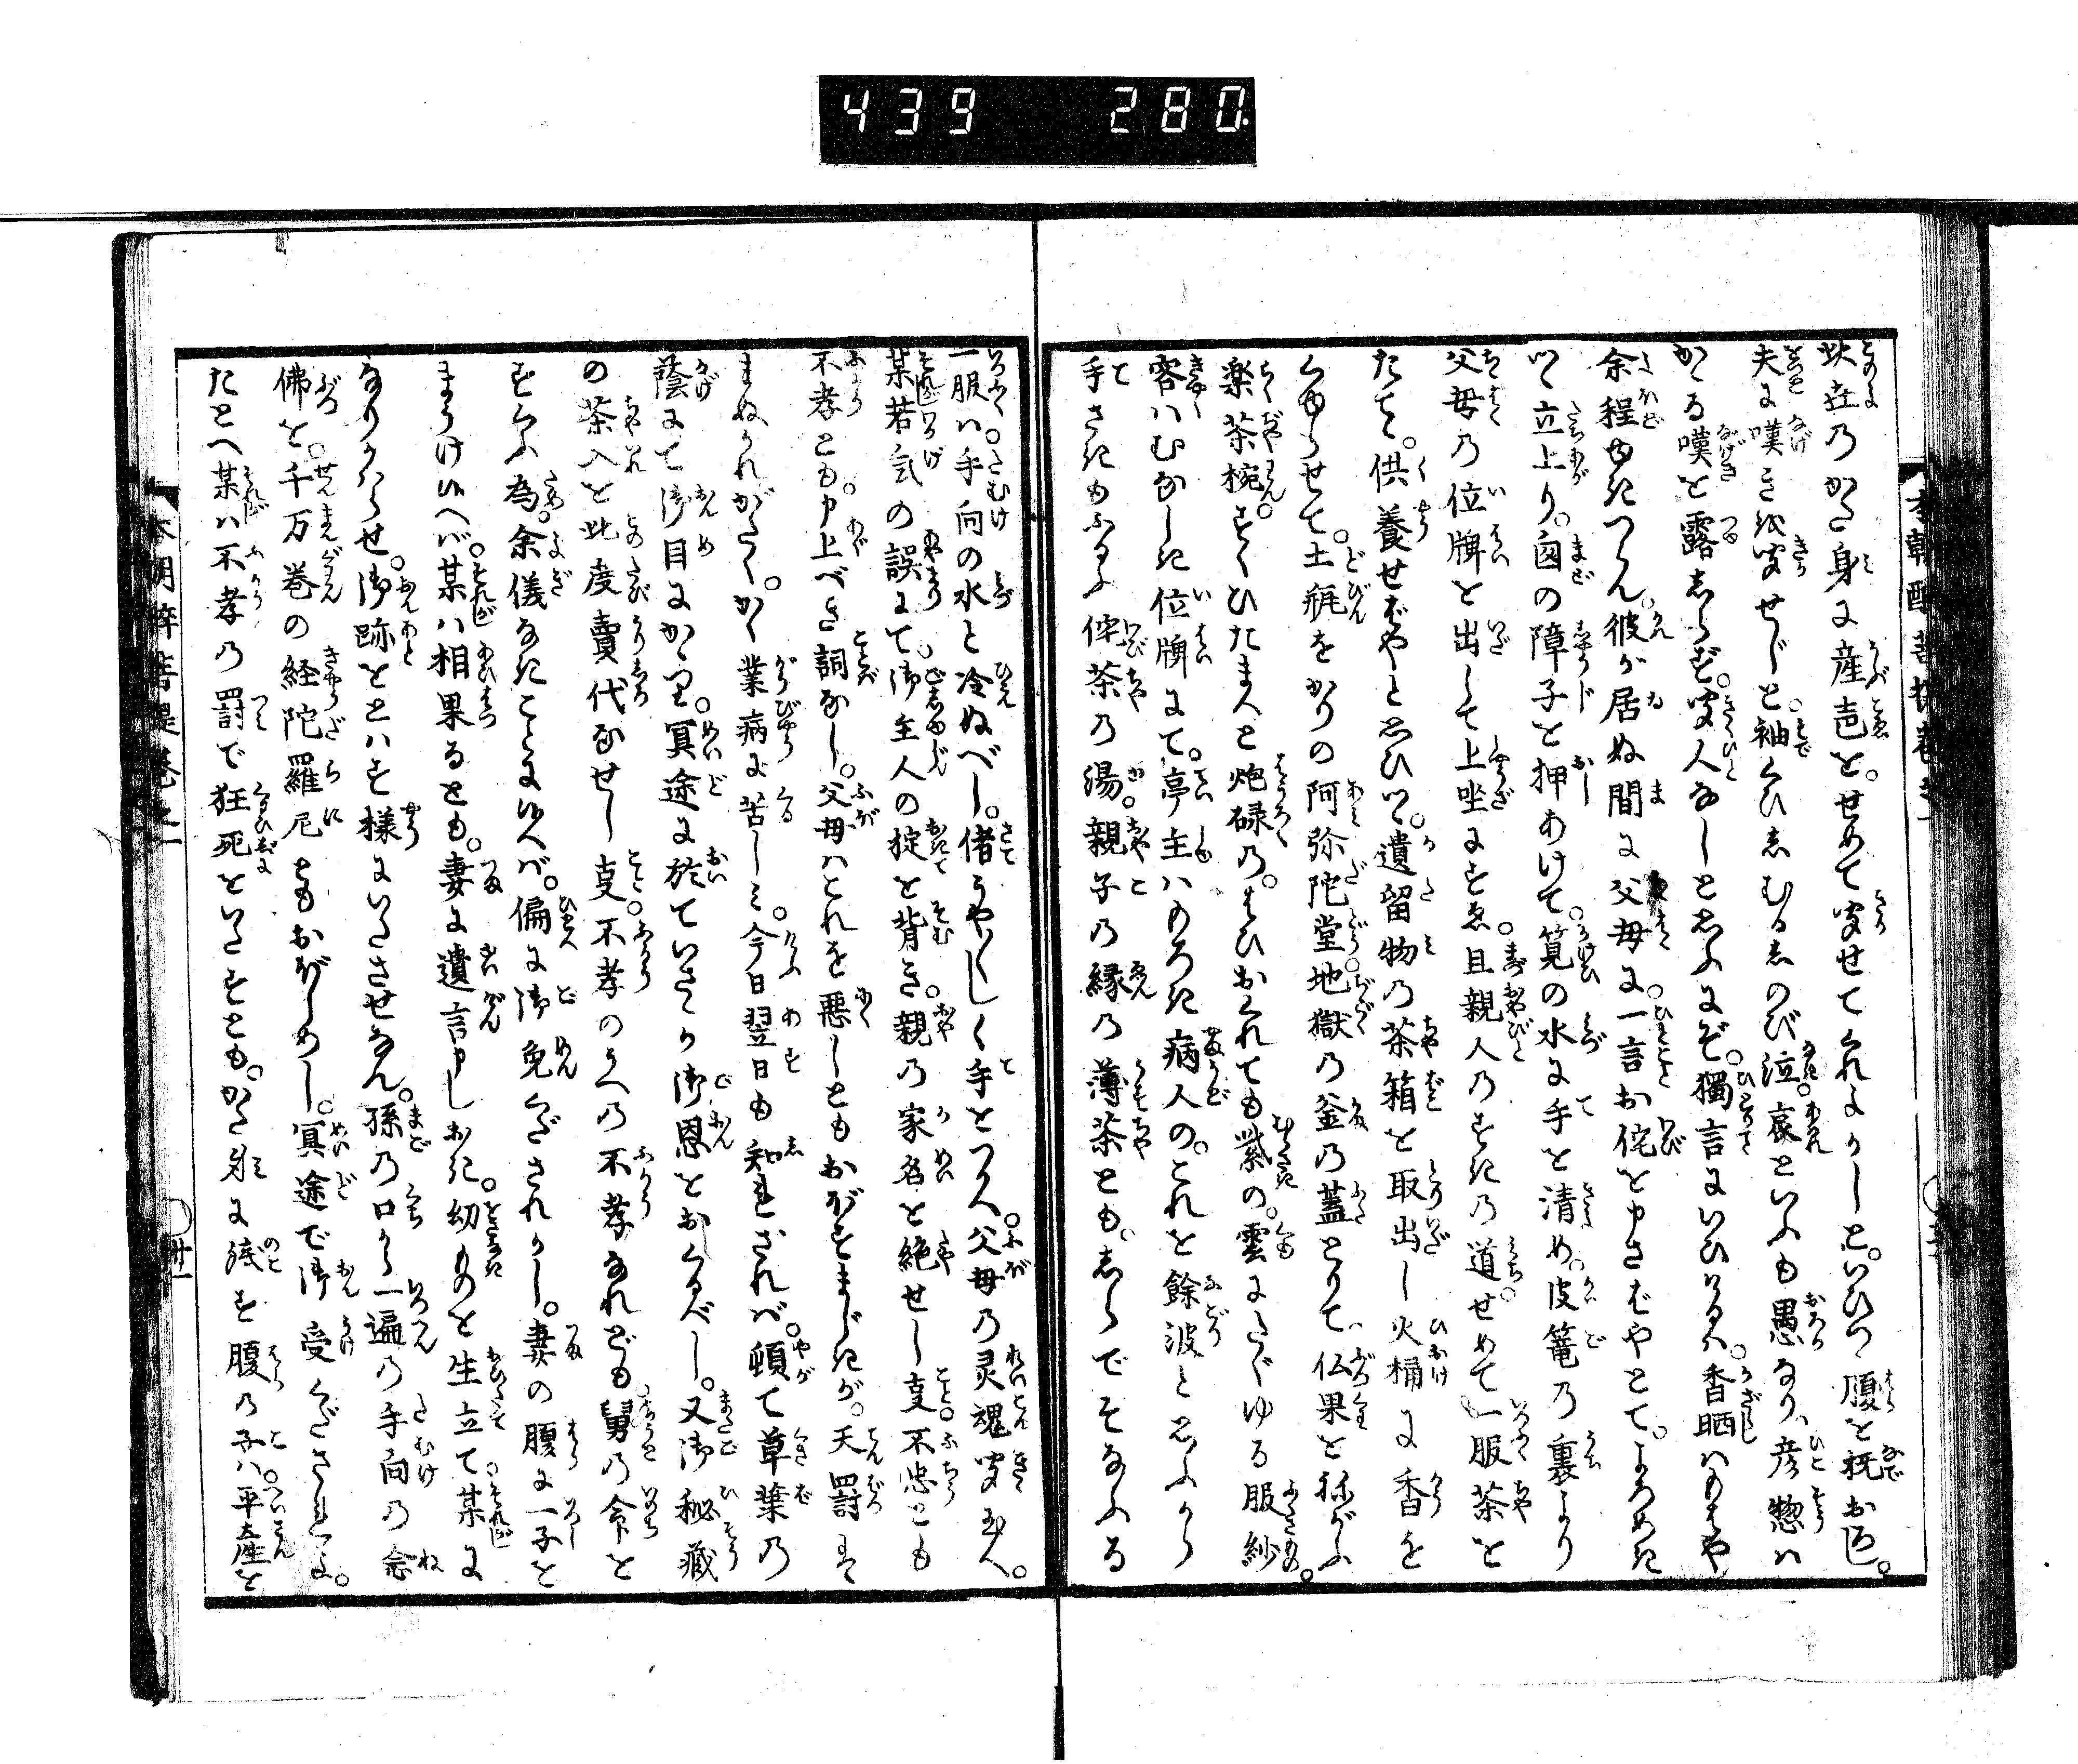 439 280
此世乃かたき身に産声を。せめて聞せてくれよかしと。いひつゝ腹を撫おろし。
夫に嘆きを聞せじと。袖くひしむるしのび泣。哀といふも愚なり。彦惣ハ
かゝる嘆を露しらず。聞人なしと思ふにぞ。獨言にいひけるハ。香晒ハもはや
余程ゆきつらん。彼が居ぬ間に父母に。一言お侘を申さばやとて。よろめき
つゝ立上り。窓の障子を押あけて。筧の水に手を清め。皮篭の裏より
父母乃位牌を出して上坐にすゑ。且親人のすきの道。せめて一服茶を
たてゝ。供養せばやと思ひつゝ。遺留物の茶箱を取出し火桶に香を
くゆらせて。土瓶をかりの阿弥陀堂地獄の釜の蓋とりて。仏果を祢がふ
楽茶椀。すくひたまへと炮碌の。はひおくれても紫の。雲にたぐゆる服紗。
客ハむなしき位牌にて。亭主ハもろき病人の。これを餘波と思ふから
手さきもふるふ侘茶の湯。親子の縁の薄茶とも。しらでそなふる
一服ハ。手向の水と冷ぬべし。偖うや〳〵しく手をつかへ。父母の灵魂聞玉へ。
某若気の誤にて。御主人の掟を背き。親の家名を絶せし㕝。不忠とも
不孝とも。申上べき詞なし。父母ハこれを悪しともおぼすまじきが。天罸は
まぬかれがたく。かく業病に苦しミ。今日翌日も知れざれバ。頓て草葉の
蔭にて御目にかゝり。冥途に於ていさゝか御恩をおくるべし。又御秘蔵
の茶入を此度賣代なせし㕝。不孝のうへの不孝なれども舅の命を
すくふ為。余儀なきことに候へバ。偏に御免くだされかし。妻の腹に一子を
まうけ候へバ。某ハ相果るとも。妻に遺言申しおき。幼ものを生立て。某に
なりかはらせ。御跡をとはす様にいたさせなん。孫の口から一遍の手向の念
佛を。千万巻の経陀羅尼ともおぼしめし。冥途で御受くだされよ。
たとへ某ハ不孝の罸で狂死をいたすとも。かたみに残す腹の子ハ。平産を
本朝酔菩提巻之一
本朝酔菩提巻之一
廿一